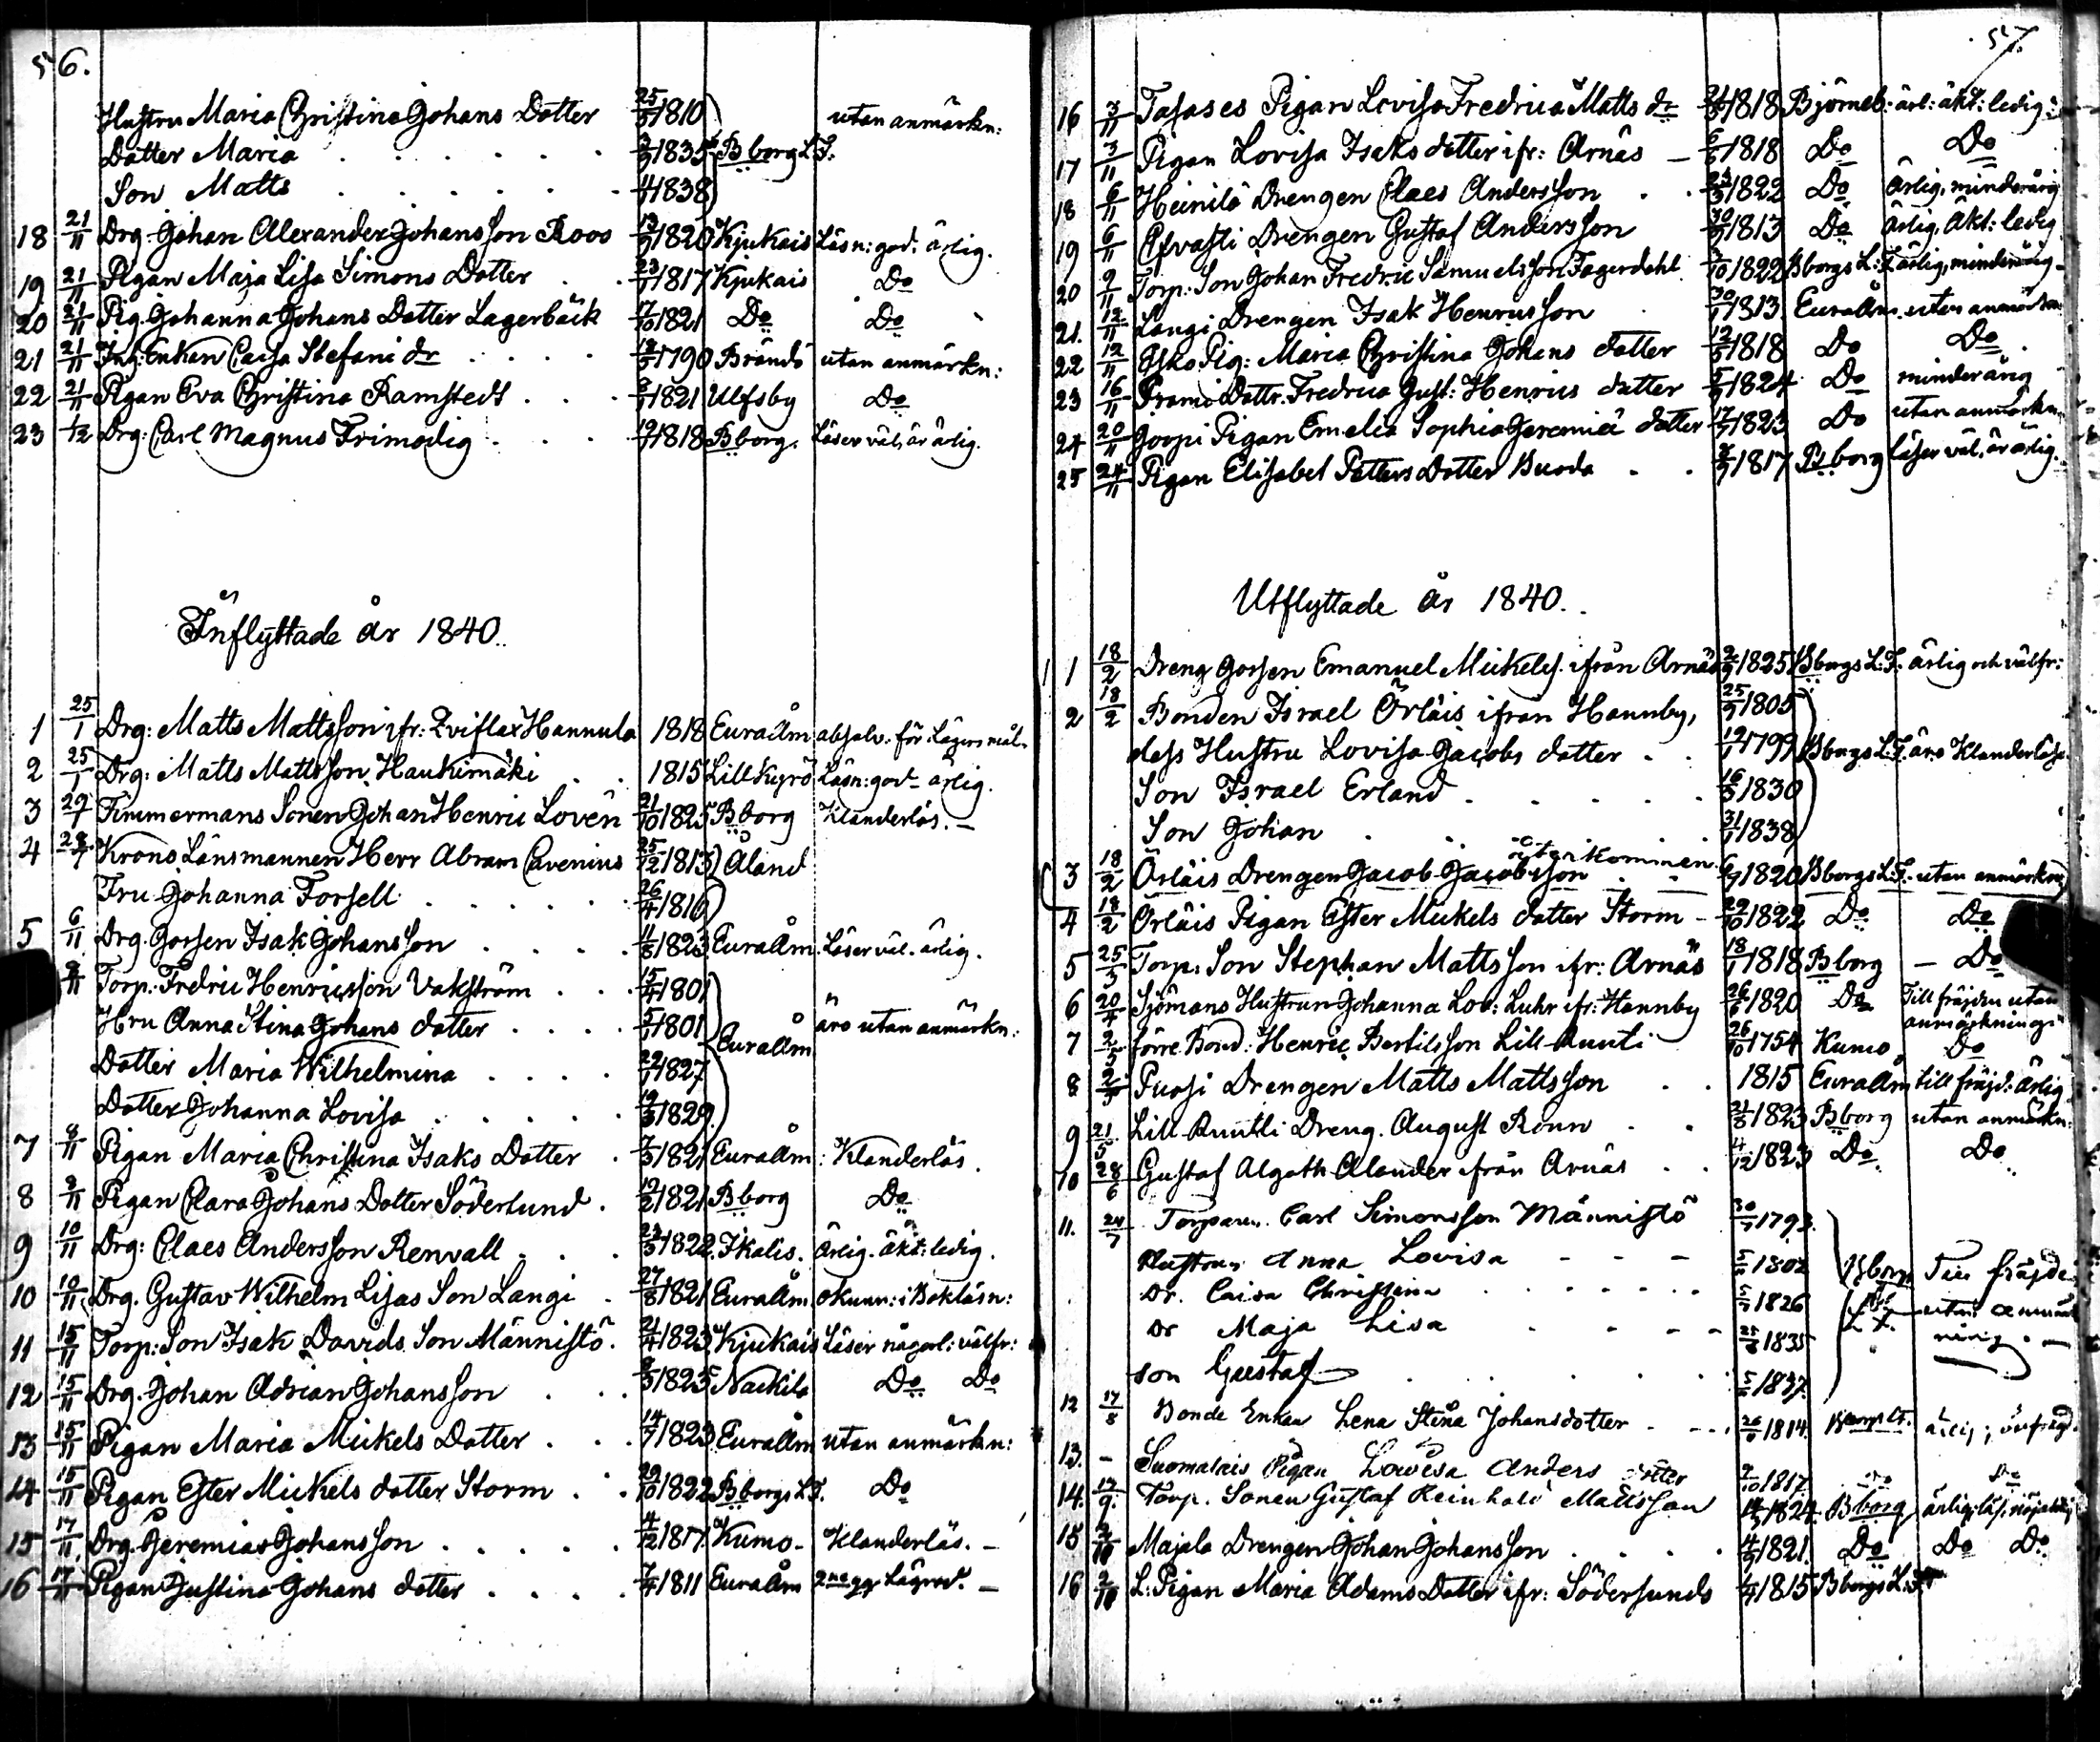 56.
Hustru Maria Christina Johans Dotter 25/3 1810 utan anmärkn:
Dotter Maria 1835 Bborg L.F.
Son Matts 1838
18 21/11 Drg. Johan Alexander Johansson Roos 1820 Kjukais Läsn: god. ärlig.
19 21/11 Pigan Maja Lisa Simons Dotter 1817 Kjukais Do
20 21/11 Pig. Johanna Johans Dotter Lagerbäck 17/10 1821 Do Do
21 21/11 Enkan Caisa Stefani dr 1790 Brändö utan anmärkn:
22 21/11 Pigan Eva Christina Ramstedt 1821 Ulfsby Do
23 1/12 Drg. Carl Magnus Frimodig 1818 Bborg. Läser väl, är ärlig.
Inflyttade år 1840.
1 25/1 Drg: Matts Mattsson ifr: Hannula 1818 Euraåm absolv. för Lägers mål.
2 25/1 Drg: Matts Mattsson Haukimäki 1815 Lill Kyrö Läsn: god ärlig.
3 Timmermans Sonen Johan Henric Lovén 21/10 1825 Bborg Klanderlös. –
4 Krono Länsmannen Herr Abram Cavenius 25/12 1813 Åland
Fru Johanna Forsell 26/4 1816
5 6/11 Drg. Gossen Isak Johansson 11/8 1823 Euraåm. Läser väl. ärlig.
Torp. Fredric Henricsson Vakström 15/4 1801
Hru Anna Stina Johans dotter 1801 Euraåm äro utan anmärkn:
Dotter Maria Wilhelmina 1827
Dotter Johanna Lovisa 19/3 1829.
7 8/11 Pigan Maria Christina Isaks Dotter 1821 Euraåm: Klanderlös.
8 9/11 Pigan Clara Johans Dotter Söderlund. 1821 Bborg Do
9 10/11 Drg: Claes Andersson Renvall 1822 Ikalis. ärlig. äkt: ledig.
10 10/11 Drg. Gustav Wilhelm Lisas Son Langi 27/8 1821 Euraåm. okunn: i Bokläsn:
11 15/11 Torp: Son Isak Davids Son Männistö. 21/4 1823 Kjukais Läser någorl: välfr:
12 15/11 Drg. Johan Adrian Johansson 1825 Nackila Do Do
13 15/11 Pigan Maria Mickels Dotter 14/7 1823 Euraåm utan anmärkn:
14 15/11 Pigan Ester Mickels dotter Storm 29/10 1822 Bborgs L.F. Do
15 17/11 Drg. Jeremias Johansson 4/12 1817 Kumo. Klanderlös. –
16 17/11 Pigan Justina Johans dotter 7/4 1811 Euraåm 2ne gr Lägrad. –
57.
16 3/11 Pigan Lovisa Fredrica Matts dr 1818 Björneb: ärl: äkt: ledig:
17 3/11 Pigan Lovisa Isaks dotter ifr: Arnäs – 1818 Do Do
18 6/11 Heinilä Drengen Claes Andersson 1822 Do ärlig, minderårig
19 6/11 Drengen Gustaf Andersson 1813 Do ärlig, äkt: ledig
20 9/11 Torp: Son Johan Fredric Samuelsson Fagerdahl 1822 Bborgs L:F. ärlig, minderårig.
21. 12/11 Langi Drengen Isak Henricsson 1813 Euraåm. utan anmärkn
22 12/11 Pig: Maria Christina Johans dotter 1818 Do Do
23 16/11 Dottr. Fredrica Gust: Henrics dotter 1824 Do minderårig
24 20/11 Pigan Emelia Sophia Jeremiä dotter 1823 Do utan anmärkn.
25 24/11 Pigan Elisabet Petters Dotter 1817 Bborg Läser väl, är ärlig.
Utflyttade år 1840.
1 18/2 Dreng Gossen Emanuel Mickels. ifrån Arnäs 1825 Bborgs L:F. ärlig och välfr:
2 18/2 Bonden Israel Örläis ifrån Hannby, 25/9 1805
dess Hustru Lovisa Jacobs dotter 1799 Bborgs L:F. äro Klanderlösa
Son Israel Erland 1830
Son Johan 1838
återkommen
3 18/2 Örläis Drengen Jacob Jacobsson 1820 Bborgs L:F. utan anmärkn
4 18/2 Örläis Pigan Ester Mickels dotter Storm 29/10 1822 Do Do
5 25/3 Torp: Son Stephan Mattsson ifr: Arnäs 18/1 1818 Bborg – Do
6 20/4 Sjömans Hustrun Johanna Lov: Luhr ifr: Hannby 1820 Do Till fräjden utan anmärkning
7 2/5 förre Bond: Henric Bertilsson Lill-Ruuti 26/10 1754 Kumo Do
8 2/5 Puosi Drengen Matts Mattsson 1815 Euraåm till fräjd: ärlig
9 21/5 Lill-Ruutti Dreng. August Rönn 1823 Bborg utan anmärkn:
10 28/6 Gustaf Algoth Alander ifrån Arnäs 4/12 1823 Do Do
11. Torparen Carl Simonsson Männistö 1793
Hustrun Anna Lovisa 1802 Bborg Till fräjden
Dr. Caisa Christina 1826 L.F. utan anmärk
Dr Maja Lisa 1835 ning. –
son Gustaf 1837
12 17/8 Bonde Enkan Lena Stina Johansdotter 1814 Bborg LF.
13. – Suomalais Pigan Lovisa Anders dotter 1817 Do Do
14. Torp. Sonen Gustaf Reinhold Mattsson 1824 Bborg
15 Majala Drengen Johan Johansson 1821 Do Do Do
16 L. Pigan Maria Adams Dotter ifr: Södersunds 1815 Bborgs L:F.